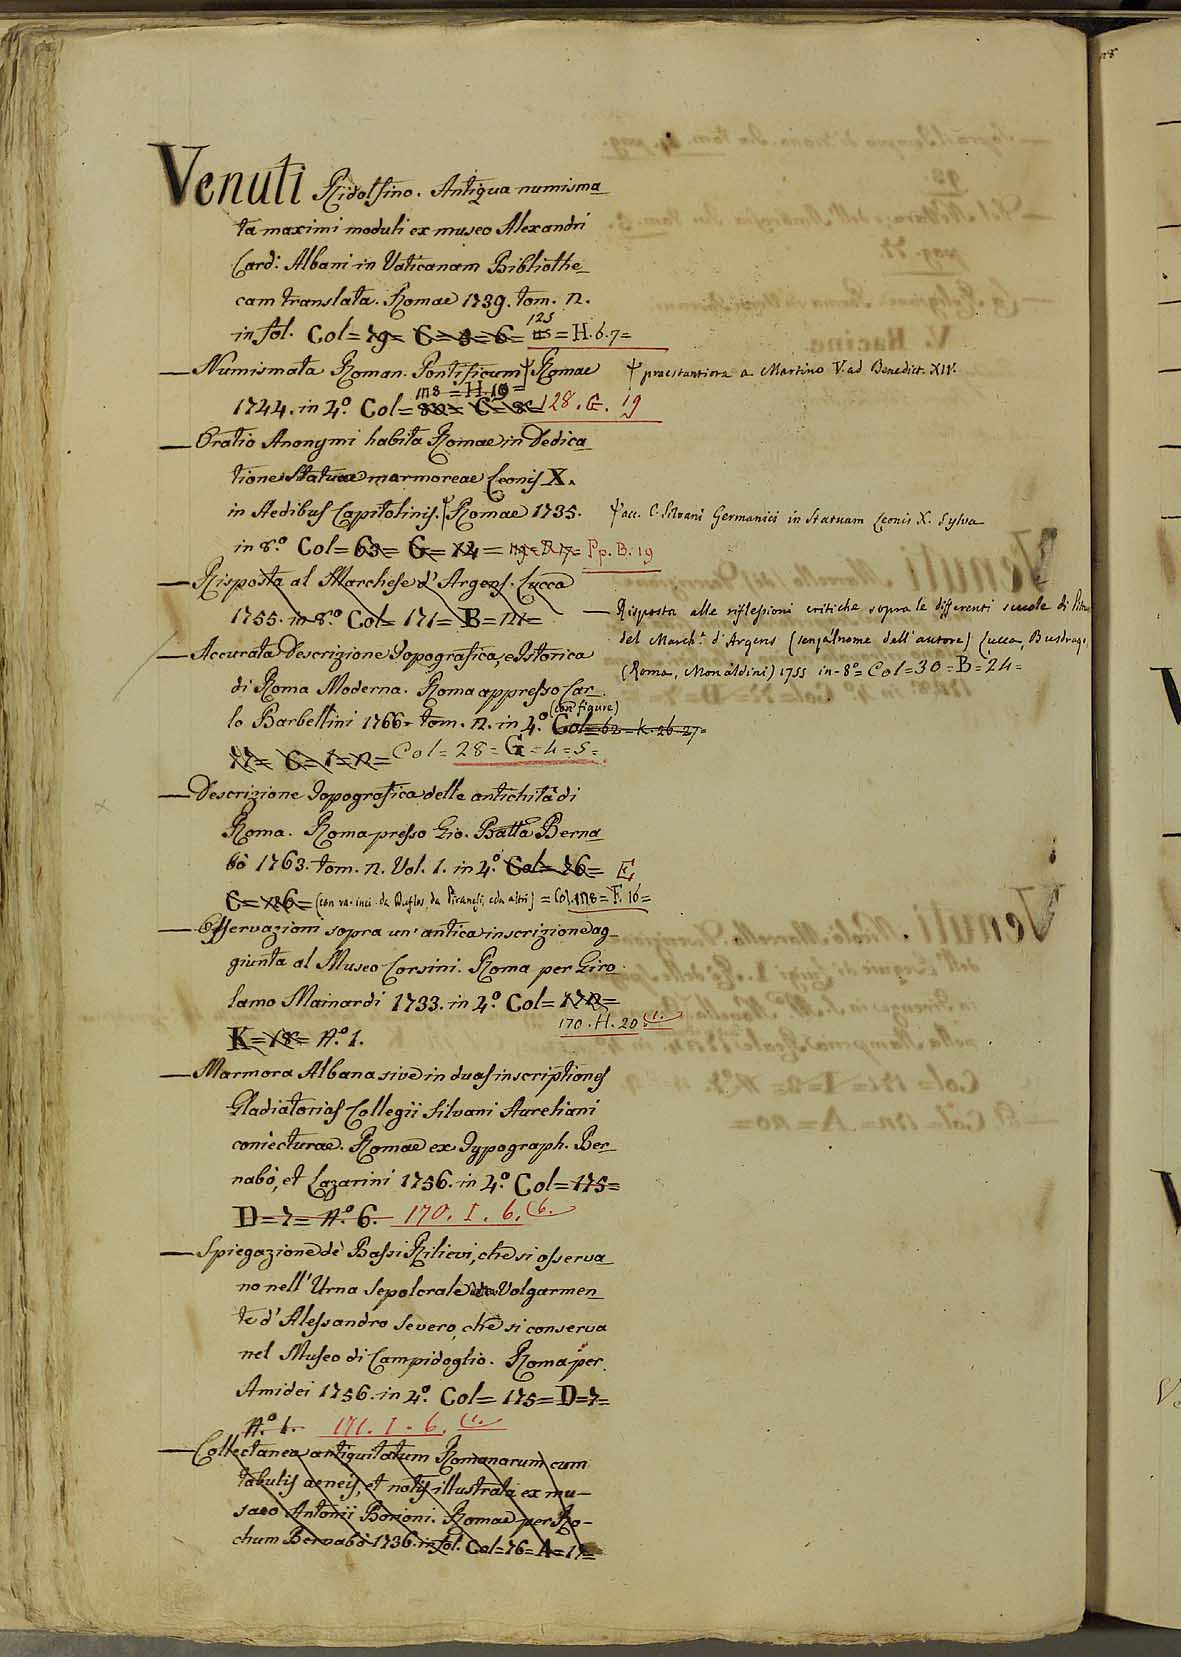 Venuti Ridolfino. Antiqua numisma_
ta maximi moduli ex museo Alexandri
Card: Albani in Vaticanam Bibliothe_
cam translata. Romae 1739. tom. 2.
in fol. Col= 79= C= 8= 6= 125 = H. 6. 7=
— Numismata Roman. Pontificum Ψ Romae
Ψ praestantiora a Martino V. ad Benedict. XIV.
118 = H. 19 =
1744. in 4.º Col= C= 8= 128. G. 19
— Oratio Anonymi habita Romae in Dedica_
tione Statuae marmoreae Leonis X.
in Aedibus Capitolinis. Ψ Romae 1735.
Ψ acc. C. Silvani Germanici in Statuam Leonis X. Sylva
in 8.º Col= 63= G= 14 = Pp. B. 19
— Risposta al Marchese d' Argens. Lucca
1755. in 8.º Col= 171= B= 121=
— Risposta alle riflessioni critiche sopra le differenti scuole di Pitu
del March.e d'Argens (senza'l nome dell'autore) Lucca, Busdragi,
(Roma, Monaldini) 1755 in-8º= Col=30=B=24=
— Accurata Descrizione Topografica, e Istorica
di Roma Moderna. Roma appresso Car_
lo Barbellini 1766. tom. 2. in 4.º (con figure) Col=62=K. 26. 27=
C= 1=2= Col= 28= G=4=5=
— Descrizione Topografica delle antichità di
Roma. Roma presso Gio. Batta Berna_
bò 1763. tom. 2. Vol. 1. in 4.º Col= 76=
C= 126= (con va. inci. da Duflos, da Piranesi, e da altri) = Col. 118= F. 16=
— Osservazioni sopra un' antica inscrizione ag_
giunta al Museo Corsini. Roma per Giro_
lamo Mainardi 1733. in 4.º Col= 172=
170. H. 20 (1.
K= 18= N.º 1.
— Marmora Albana sive in duas inscriptiones
Gladiatorias Collegii Silvani Aureliani
coniecturae. Romae ex Typograph. Ber_
nabò, et Lazarini 1756. in 4.º Col= 175=
D= 7= N.º 6. 170. I. 6. (6.
— Spiegazione de' Bassi Rilievi, che si osserva_
no nell' Urna Sepolcrale Volgarmen_
te d' Alessandro Severo, che si conserva
nel Museo di Campidoglio. Roma per
Amidei 1756. in 4.º Col= 175= D=7=
N.º 1. 171. I. 6. (1.
— Collectanea antiquitatum Romanarum cum
tabulis aeneis, et notis illustrata ex mu-
saeo Antonii Borioni. Romae per Ro-
chum Bernabò 1736. in fol. Col=76= A= 17=